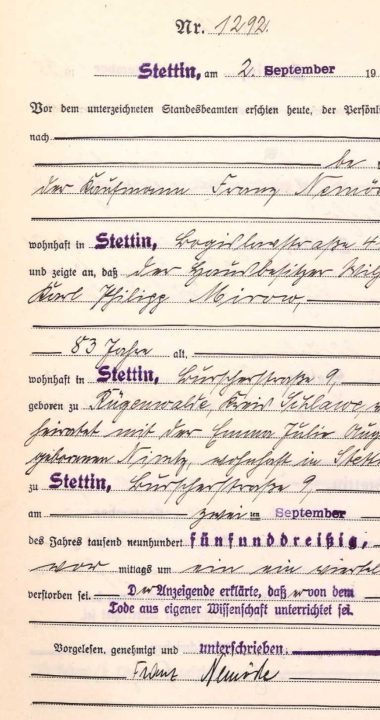 Nr. 1292.
Stettin, am 2. September 19
Vor dem unterzeichneten Standesbeamten erschien heute, der Persönl
nach
be
der Kaufmann Franz Nemö
wohnhaft in Stettin, Bogislavstraße 4
und zeigte an, daß der Hausbesitzer Wilh
Karl Philipp Mirow,
83 Jahre alt,
wohnhaft in Stettin, Burscherstraße 9,
geboren zu Rügenwalde, Kreis Schlawe,
heiratet mit der Emma Julie Aug
geborenen Nimtz, wohnhaft in Stett
zu Stettin, Burscherstraße 9
am zwei ten September
des Jahres tausend neunhundert fünfunddreißig,
vor mittags um ein ein viertel
verstorben sei. Der Anzeigende erklärte, daß er von dem
Tode aus eigener Wissenschaft unterrichtet sei.
Vorgelesen, genehmigt und unterschrieben.
Franz Nemöde